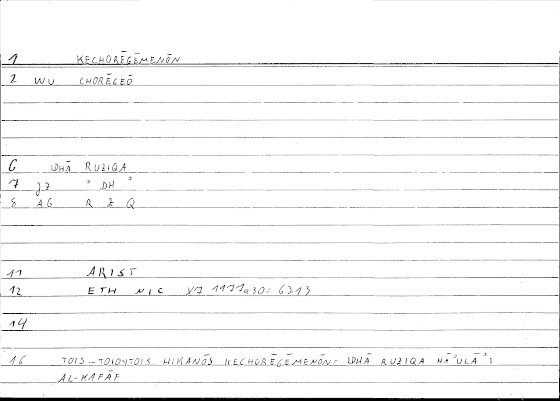 1 KECHORĒGĒMENŌN
2 WU CHORĒGEŌ
6 IDHĀ RUZIQA
7 JZ ʾDHʾ
8 AG R Z Q
11 ARIST
12 ETH NIC X7 1177a30: 6213
14
16 TOIS-TOIOYTOIS HIKANŌS KECHORĒGĒMENŌN: IDHĀ RUZIQA HĀʾULĀʾI
AL-KAFĀF